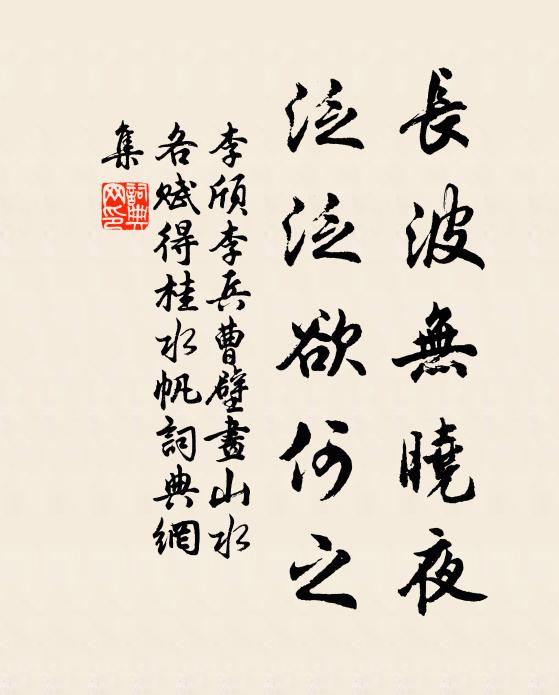 長波無曉夜
泛泛欲何之
李頎李兵曹壁畫山水
各賦得桂水帆詞典網
集
詞典網印